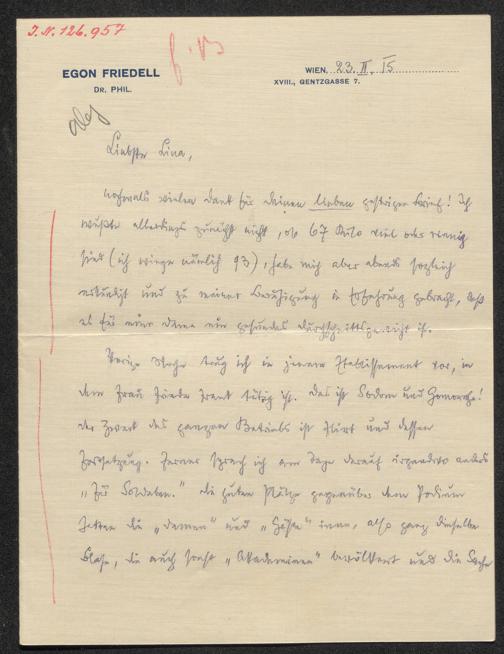 J.N. 126.957
EGON FRIEDELL
DR. PHIL.
WIEN, 23. II. 15
XVIII., GENTZGASSE 7.
Liebste Lina,
nochmals vielen Dank für Deinen lieben gestrigen Brief! Ich
wußte allerdings zunächst nicht, ob 67 Kilo viel oder wenig
sind (ich wiege nämlich 93), habe mich aber abends sogleich
erkundigt und zu meiner Beruhigung in Erfahrung gebracht, daß
es für eine Dame ein gesundes Durchschnittsgewicht ist.
Vorige Woche trug ich in jenem Etablissement vor, in
dem Frau Friede tätig ist. Das ist Sodom und Gomorrha!
Der Zweck des ganzen Betriebs ist Flirt und dessen
Fortsetzung. Ferner sprach ich am Tage darauf irgendwo anders
„Für Soldaten." Die guten Plätze gegenüber dem Podium
hatten die „Damen" und „Gäste" inne, also ganz dieselbe
die auch sonst „Akademien" bevölkert und die Sache